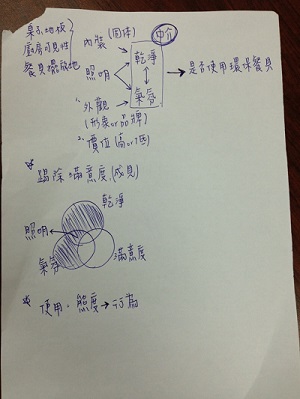 桌子,地板
廚房可見性
餐具擺放地
內裝 (固体)
中介
乾淨
照明
氣氛
是否使用環保餐具
1. 外觀
(形象or品牌)
2. 價位(高or低)
* 踢除滿意度(成見)
乾淨
照明
氣氛
滿意度
* 使用: 態度→行為